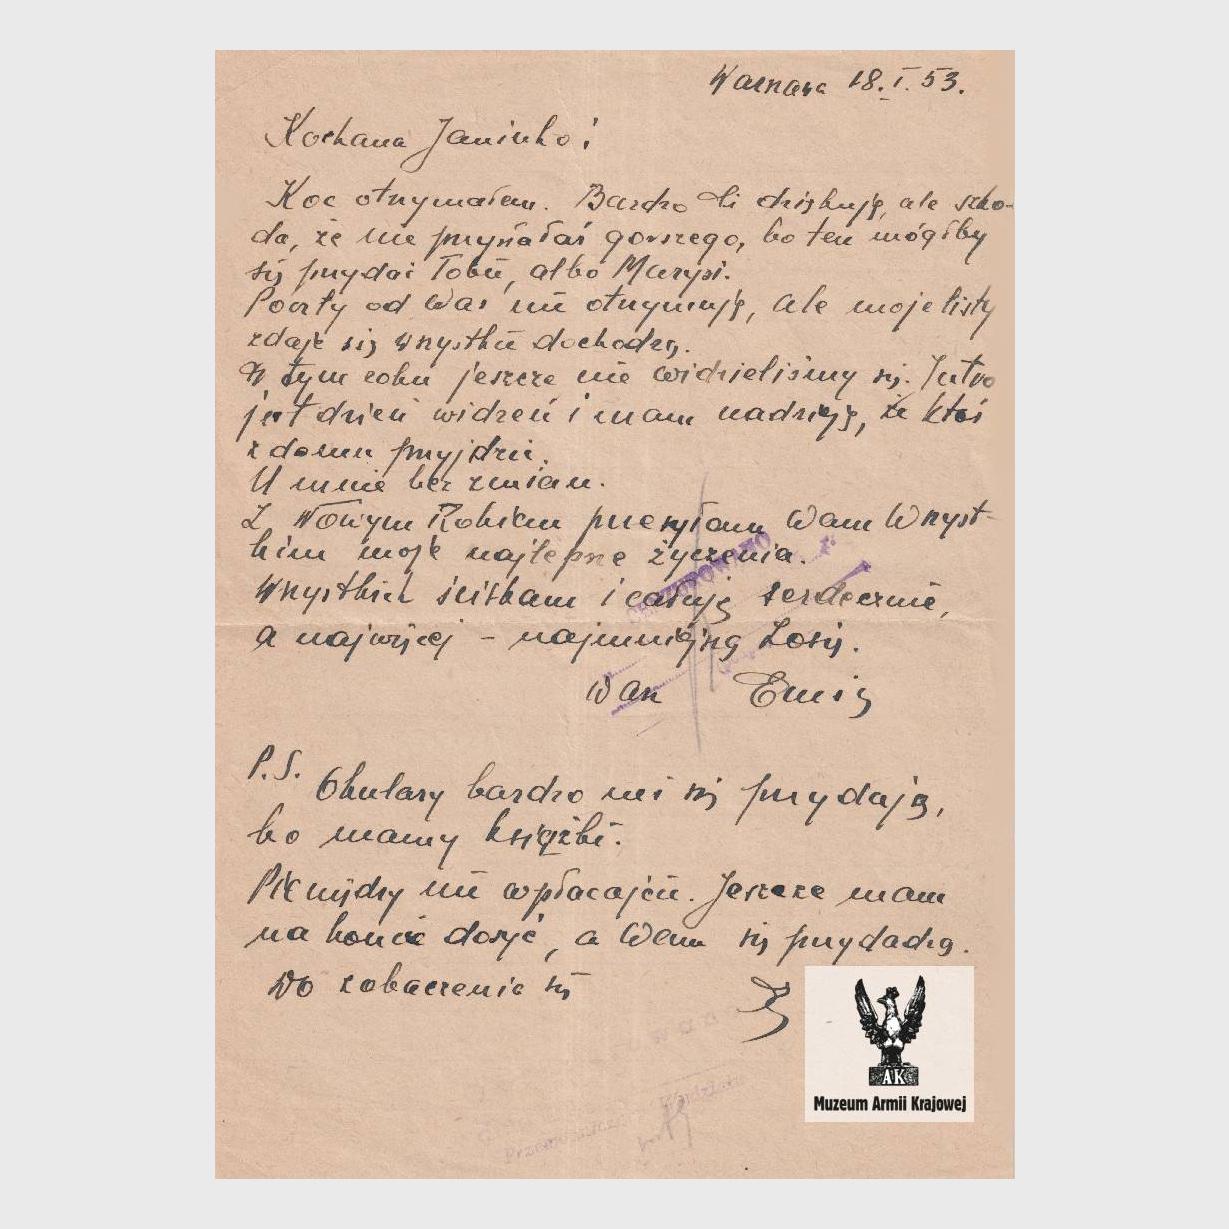 Warszawa 18.I.53.
Kochana Janinko!
Koc otrzymałem. Bardzo Ci dziękuję, ale szko-
da, że nie przysłałaś gorszego, bo ten mógłby
się przydać Tobie, albo Marysi.
Poczty od Was nie otrzymuję, ale moje listy
zdaje się wszystkie dochodzą.
W tym roku jeszcze nie widzieliśmy się. Jutro
jest dzień widzeń i mam nadzieję, że ktoś
z domu przyjdzie.
U mnie bez zmian.
Z Nowym Rokiem przesyłam Wam Wszyst-
kim moje najlepsze życzenia.
Wszystkich ściskam i całuję serdecznie,
a najwięcej – najmniejszą Zosię.
OCENZUROWANO
Wasz
P.S.
Okulary bardzo mi się przydają,
bo mamy książki.
Pieniędzy nie wpłacajcie. Jeszcze mam
na koncie dosyć, a Wam się przydadzą.
Do zobaczenia się
AK
Muzeum Armii Krajowej